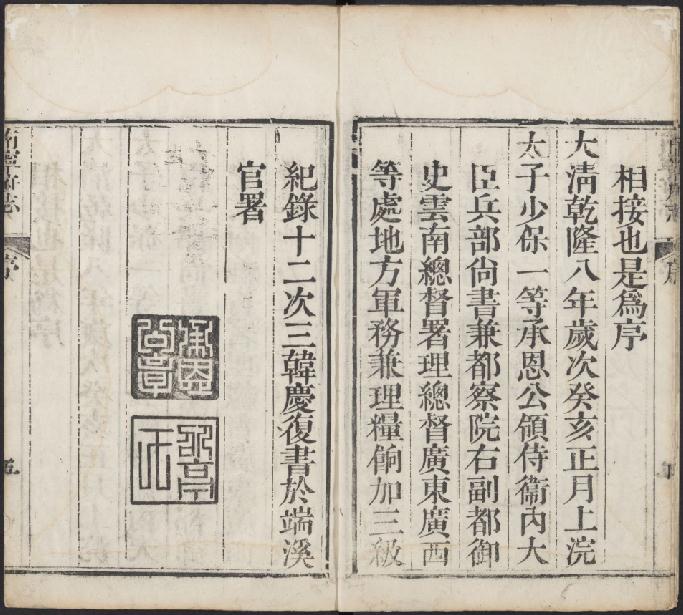 相接也是為序
大清乾隆八年歲次癸亥正月上浣
太子少保一等承恩公領侍衞內大
臣兵部尙書兼都察院右副都御
史雲南總督署理總督廣東廣西
等處地方軍務兼理糧餉加三級
紀錄十二次三韓慶復書於端溪
官署
序